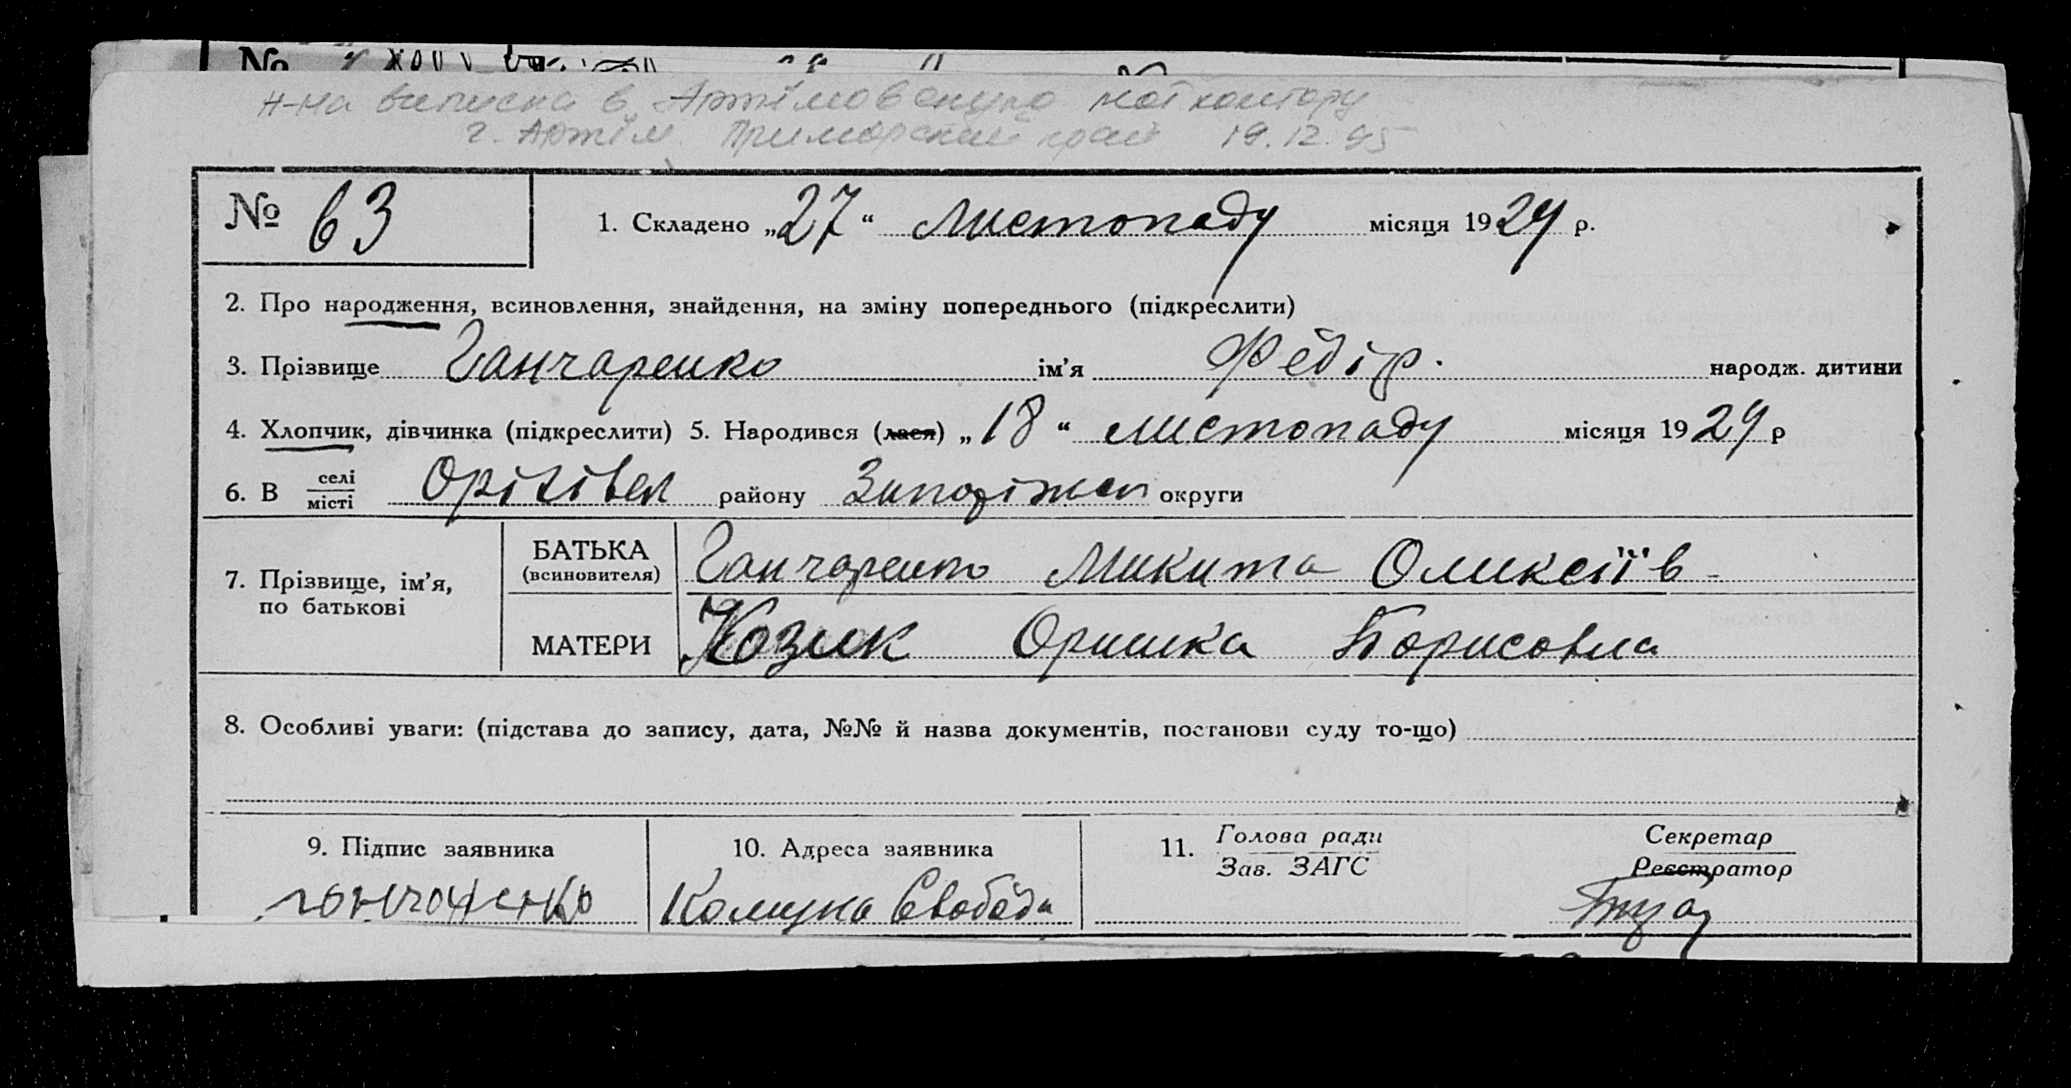 н-на виписка в Артімовскую нот контору
г. Артім Приморский край 19.12.95
№ 63
1. Складено „27“ Листопаду місяця 1924 р.
2. Про народження, всиновлення, знайдення, на зміну попереднього (підкреслити)
3. Прізвище Ганчаренко ім’я Федір. народж. дитини
4. Хлопчик, дівчинка (підкреслити) 5. Народився (лася) „18“ листопаду місяця 1924 р
6. В селі/місті Оріхівск району Запоріжск округи
7. Прізвище, ім’я, по батькові
БАТЬКА (всиновителя) Ганчаренко Микита Оликсіїв
МАТЕРИ Козик Оришка Борисовна
8. Особливі уваги: (підстава до запису, дата, №№ й назва документів, постанови суду то-що)
9. Підпис заявника 10. Адреса заявника 11. Голова ради/Зав. ЗАГС Секретар/Реєстратор
ганчаренко Комуна Свобода